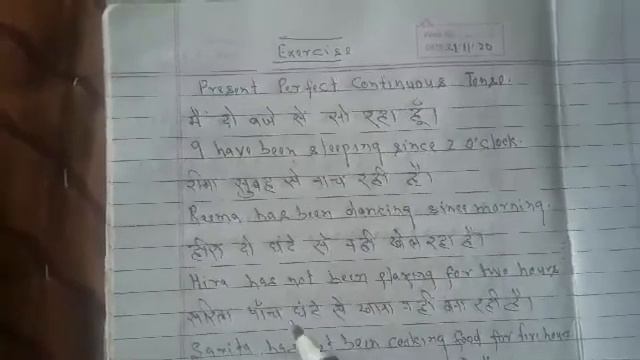 Exercise
DATE 21/11/20
Present Perfect Continuous Tense.
मैं दो बजे से सो रहा हूँ।
I have been sleeping since 2 o'clock.
रीमा सुबह से नाच रही है।
Reema has been dancing since morning.
हीरा दो घंटे से नहीं खेल रहा है।
Hira has not been playing for two hours
सरिता पाँच घंटे से खाना नहीं बना रही है।
Sarita has not been cooking food for five hours